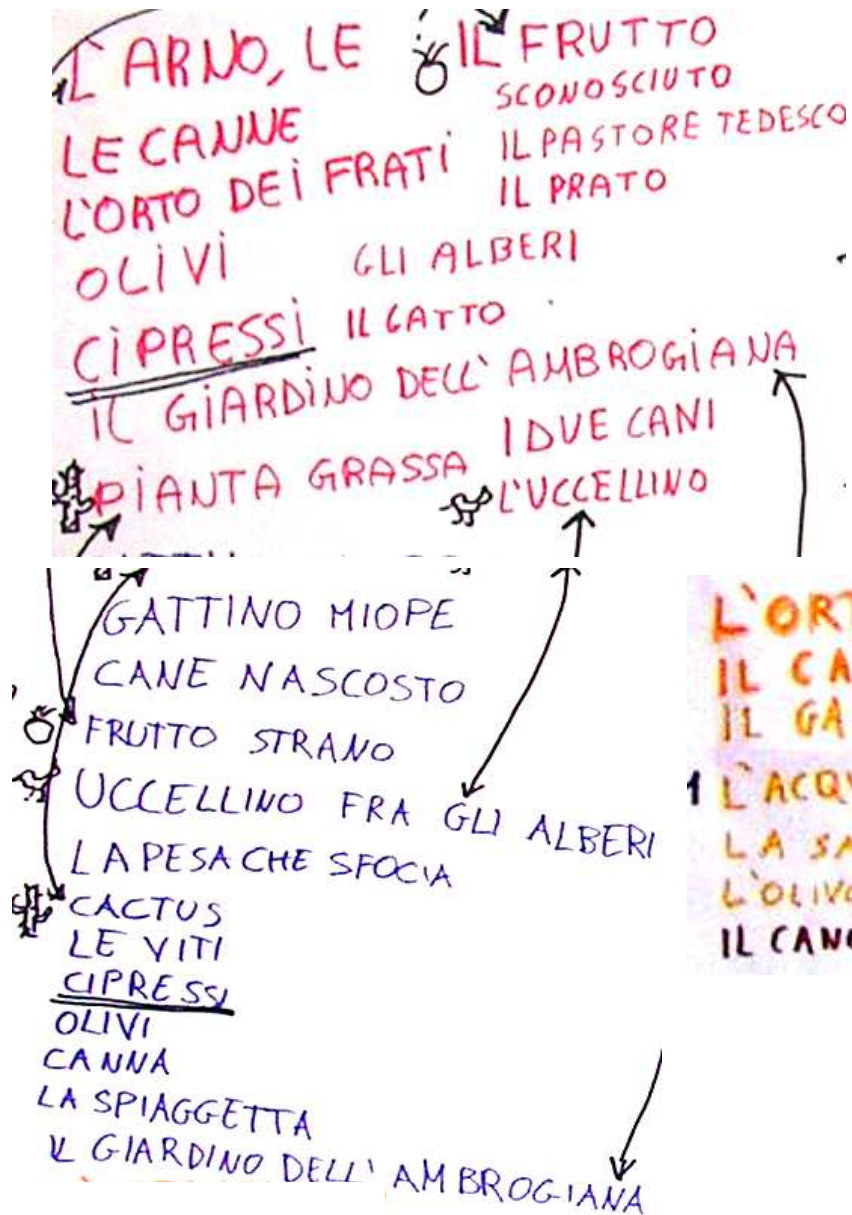 L'ARNO, LE
LE CANNE
L'ORTO DEI FRATI
OLIVI
CIPRESSI
IL GIARDINO DELL'AMBROGIANA
PIANTA GRASSA
IL FRUTTO
SCONOSCIUTO
IL PASTORE TEDESCO
IL PRATO
GLI ALBERI
IL GATTO
I DUE CANI
L'UCCELLINO
GATTINO MIOPE
CANE NASCOSTO
FRUTTO STRANO
UCCELLINO FRA GLI ALBERI
LA PESA CHE SFOCIA
CACTUS
LE VITI
CIPRESSI
OLIVI
CANNA
LA SPIAGGETTA
IL GIARDINO DELL'AMBROGIANA
IL
IL
LA
IL